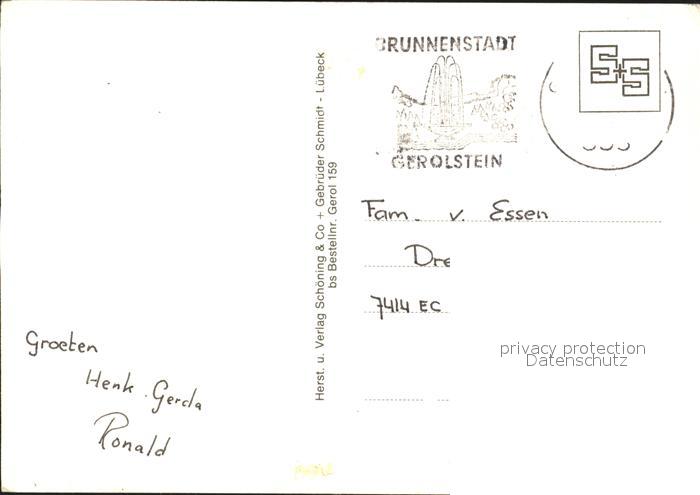 BRUNNENSTADT
GEROLSTEIN
S+S
Herst. u. Verlag Schöning & Co + Gebrüder Schmidt - Lübeck
bs Bestellnr. Gerol 159
Fam. v. Essen
Dre
7414 EC
privacy protection
Datenschutz
Groeten
Henk. Gerda
Ronald